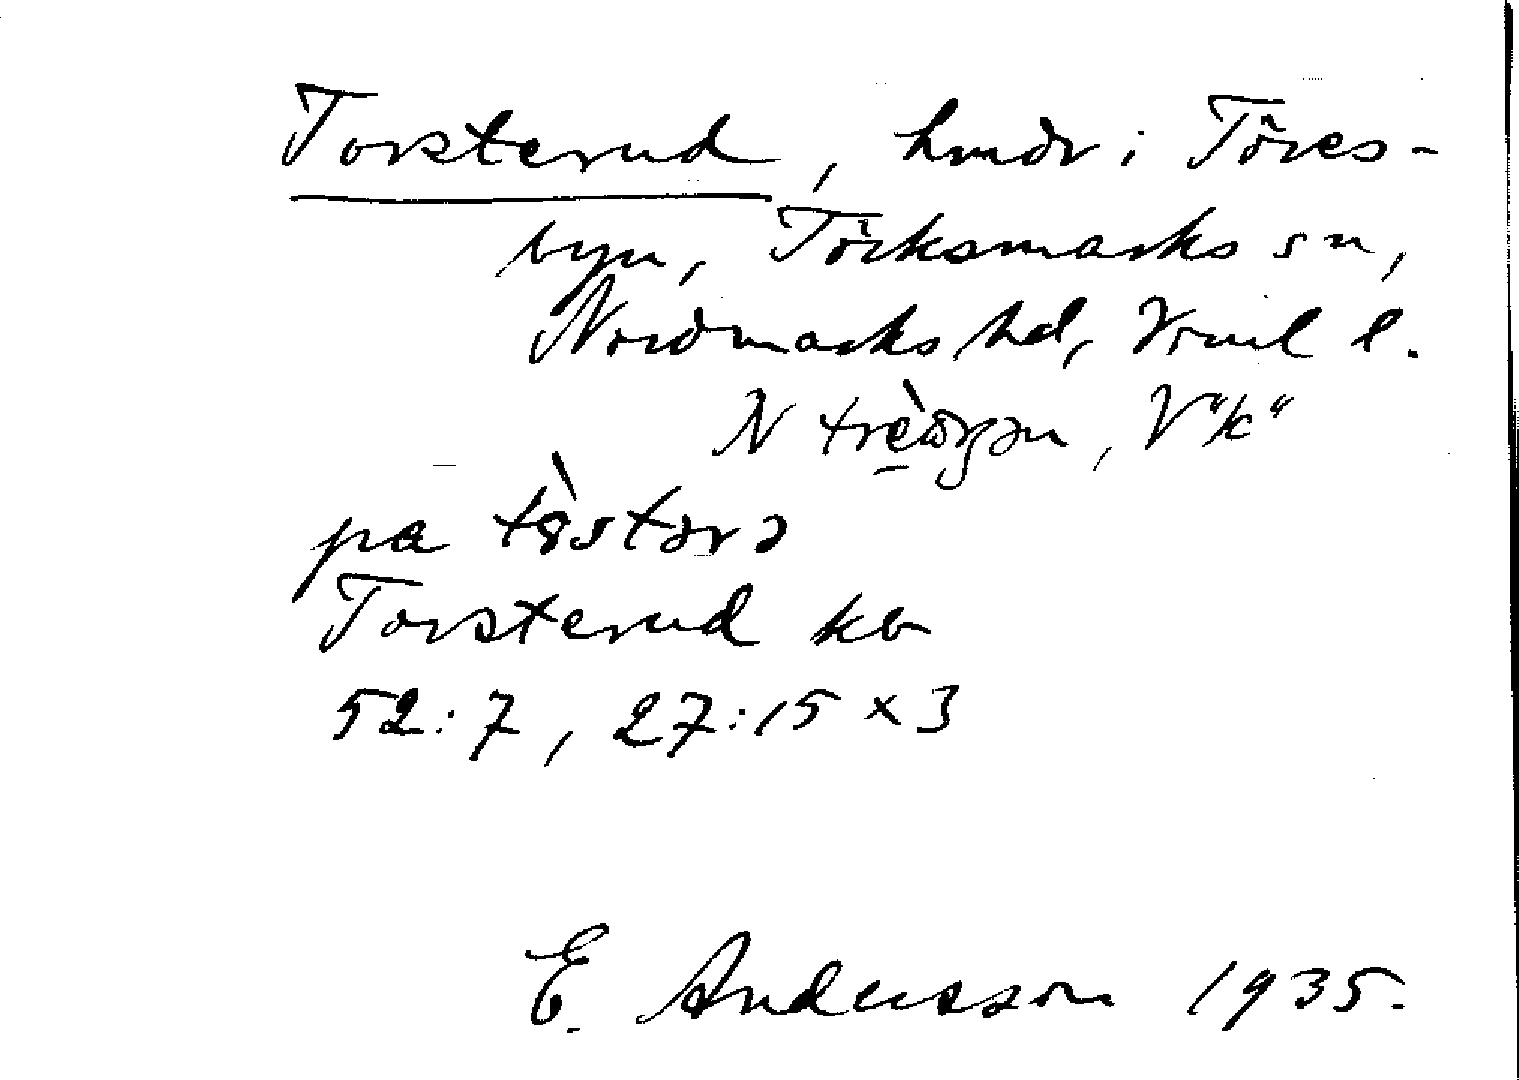 Torsterud, hmdr i Töres-
byn, Töcksmarks sn,
Nordmarks hd, Vrml l.
N trègən, V "k"
på tɵ̀stərə
Torsterud kb
52:7, 27:15 x 3
E. Andersson 1935.